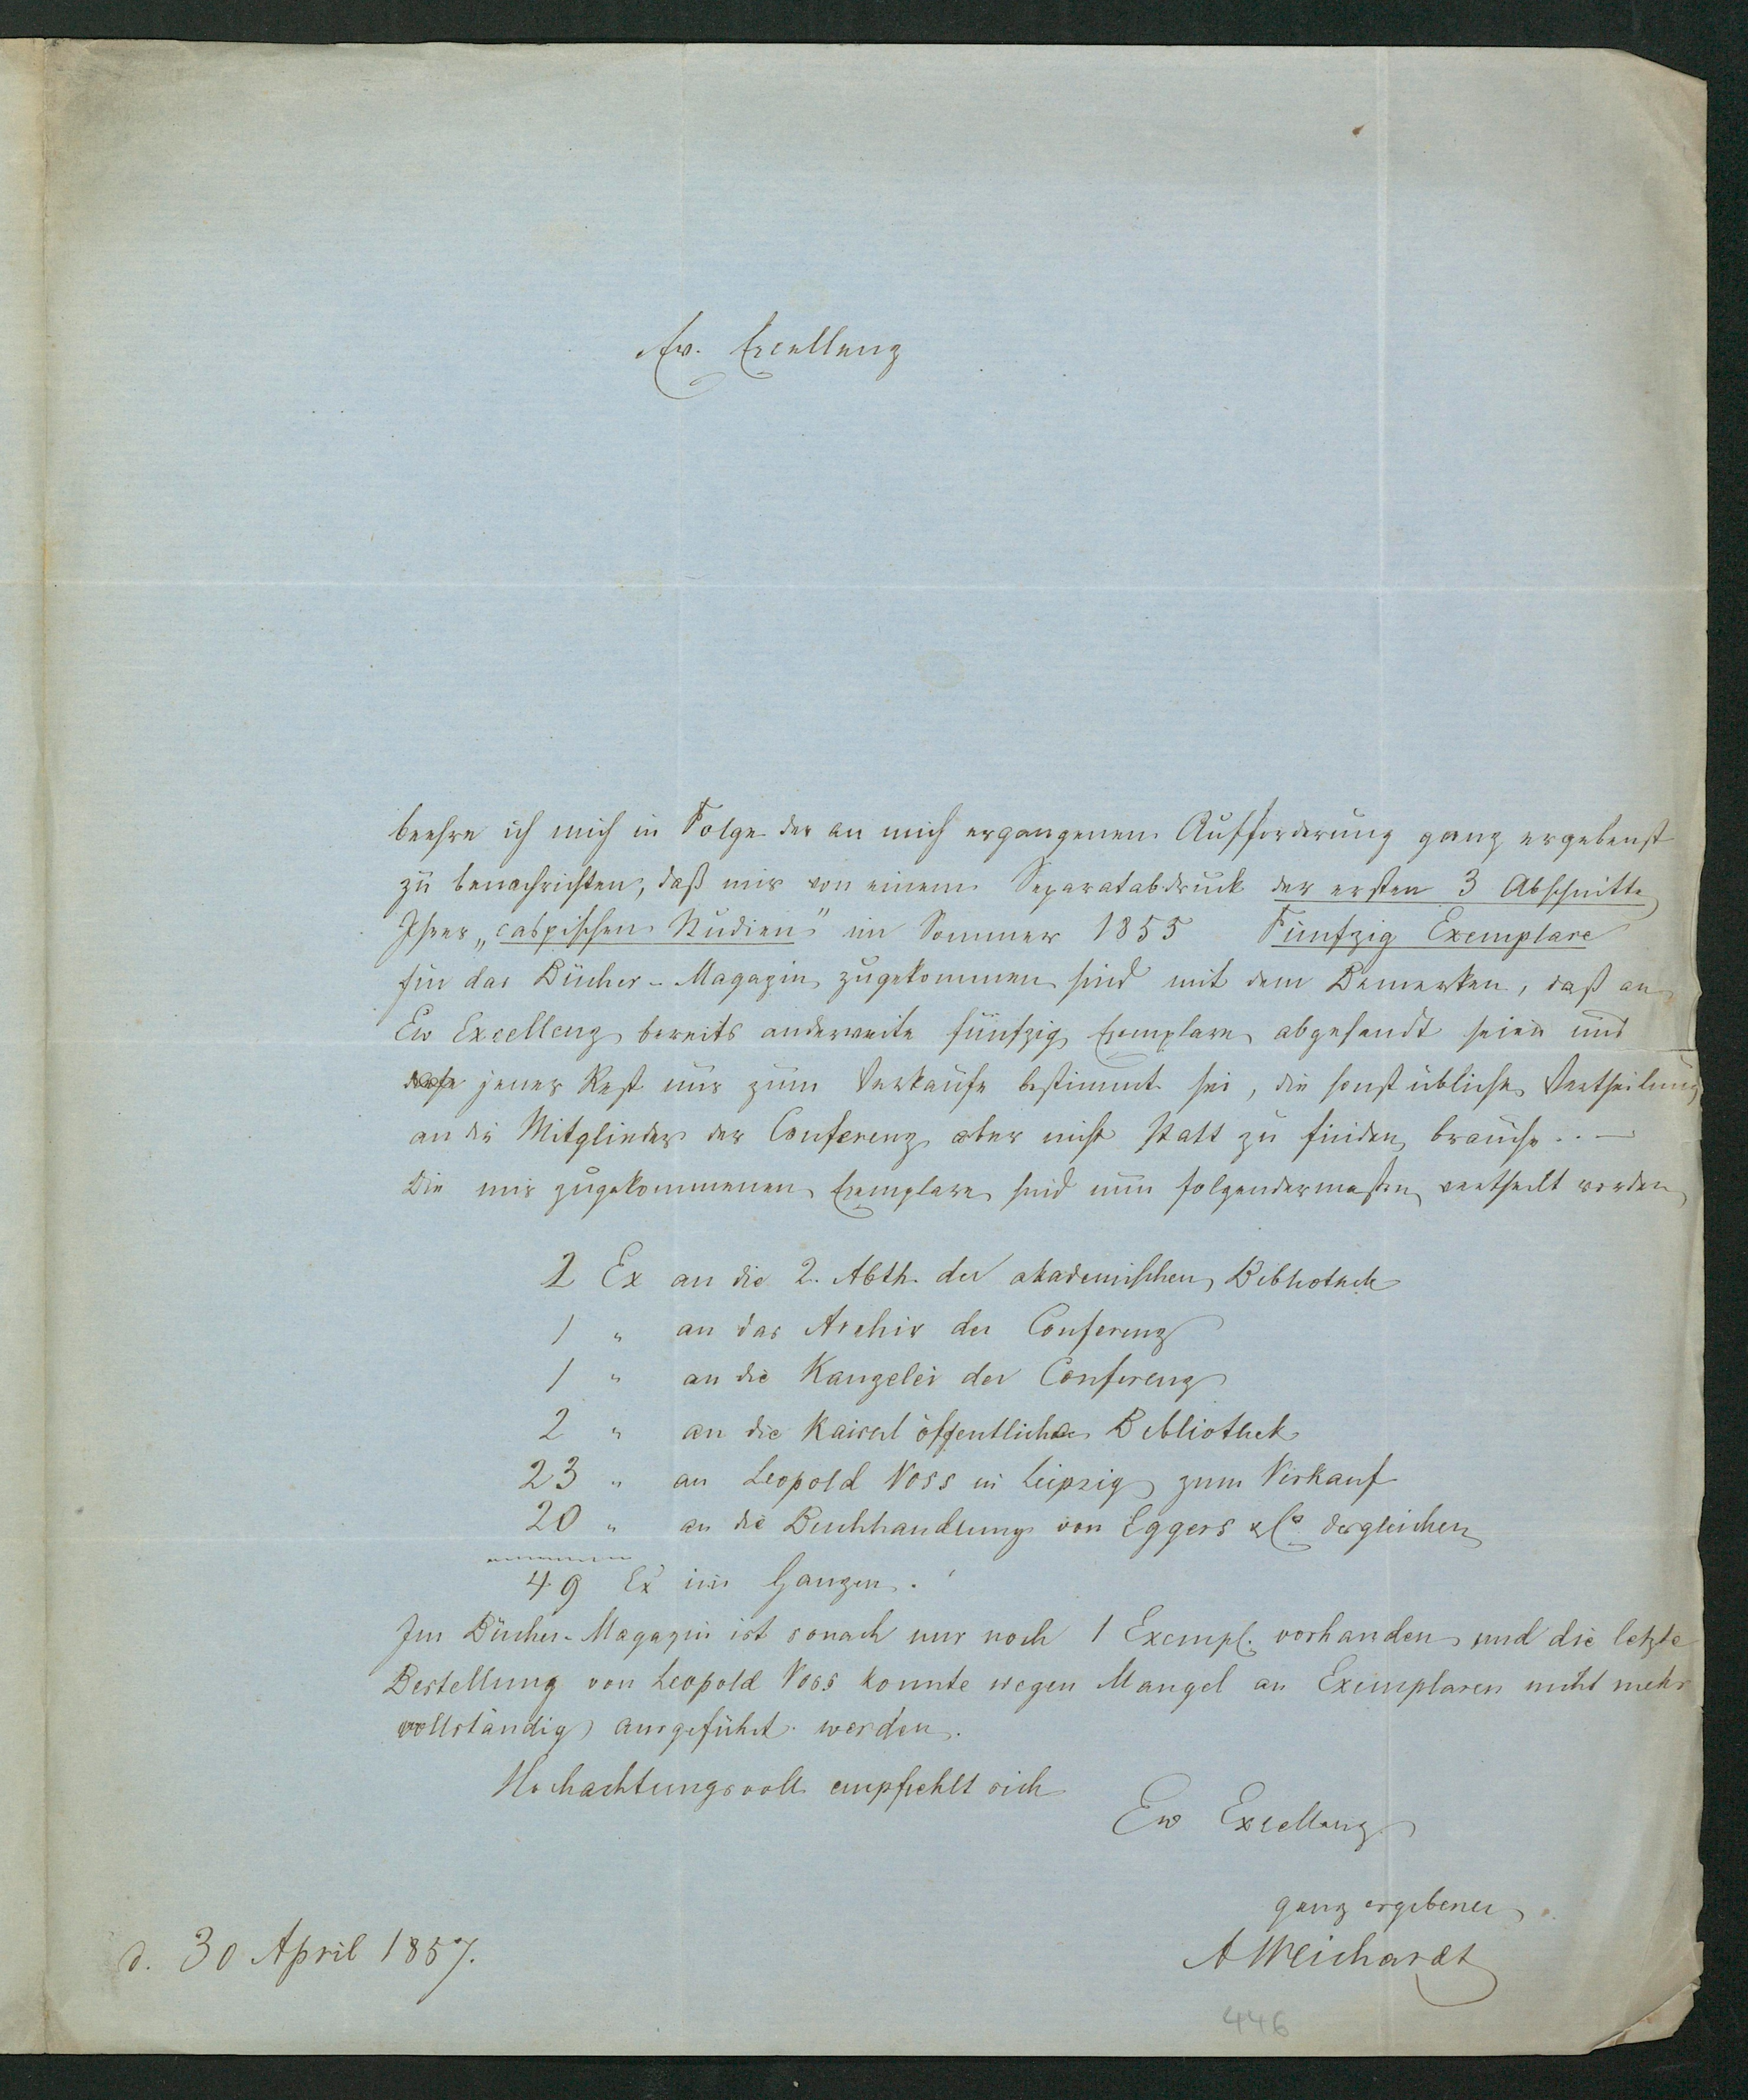 Ew. Excellenz
beehre ich mich in Folge der an mich ergangenen Aufforderung ganz ergebenst
zu benachrichten, daß mir von einem Separatabdruck der ersten 3 Abschnitte
Ihrer „caspischen Studien" im Sommer 1855 Fünfzig Exemplare
für das Bücher-Magazin zugekommen sind mit dem Bemerken, daß an
Ew Excellenz bereits anderweite fünfzig Exemplare abgesandt seien und
jener Rest nur zum Verkaufe bestimmt sei, die sonst übliche Vertheilung
an die Mitglieder der Conferenz aber nicht statt zu finden brauche. . —
Die mir zugekommenen Exemplare sind nun folgendermaßen vertheilt worden
2 Ex an die 2. Abth. der akademischen Bibliothek
1 " an das Archiv der Conferenz
1 " an die Kanzelei der Conferenz
2 " an die Kaiserl öffentliche Bibliothek
23 " an Leopold Voss in Leipzig zum Verkauf
20 " an die Buchhandlung von Eggers & Co dergleichen
49 Ex im Ganzen.
Im Bücher-Magazin ist sonach nur noch 1 Exempl. vorhanden und die letzte
Bestellung von Leopold Voss konnte wegen Mangel an Exemplaren nicht mehr
vollständig ausgeführt werden.
Hochachtungsvoll empfiehlt sich
Ew Excellenz
ganz ergebener
A Weichardt
d. 30 April 1857.
446